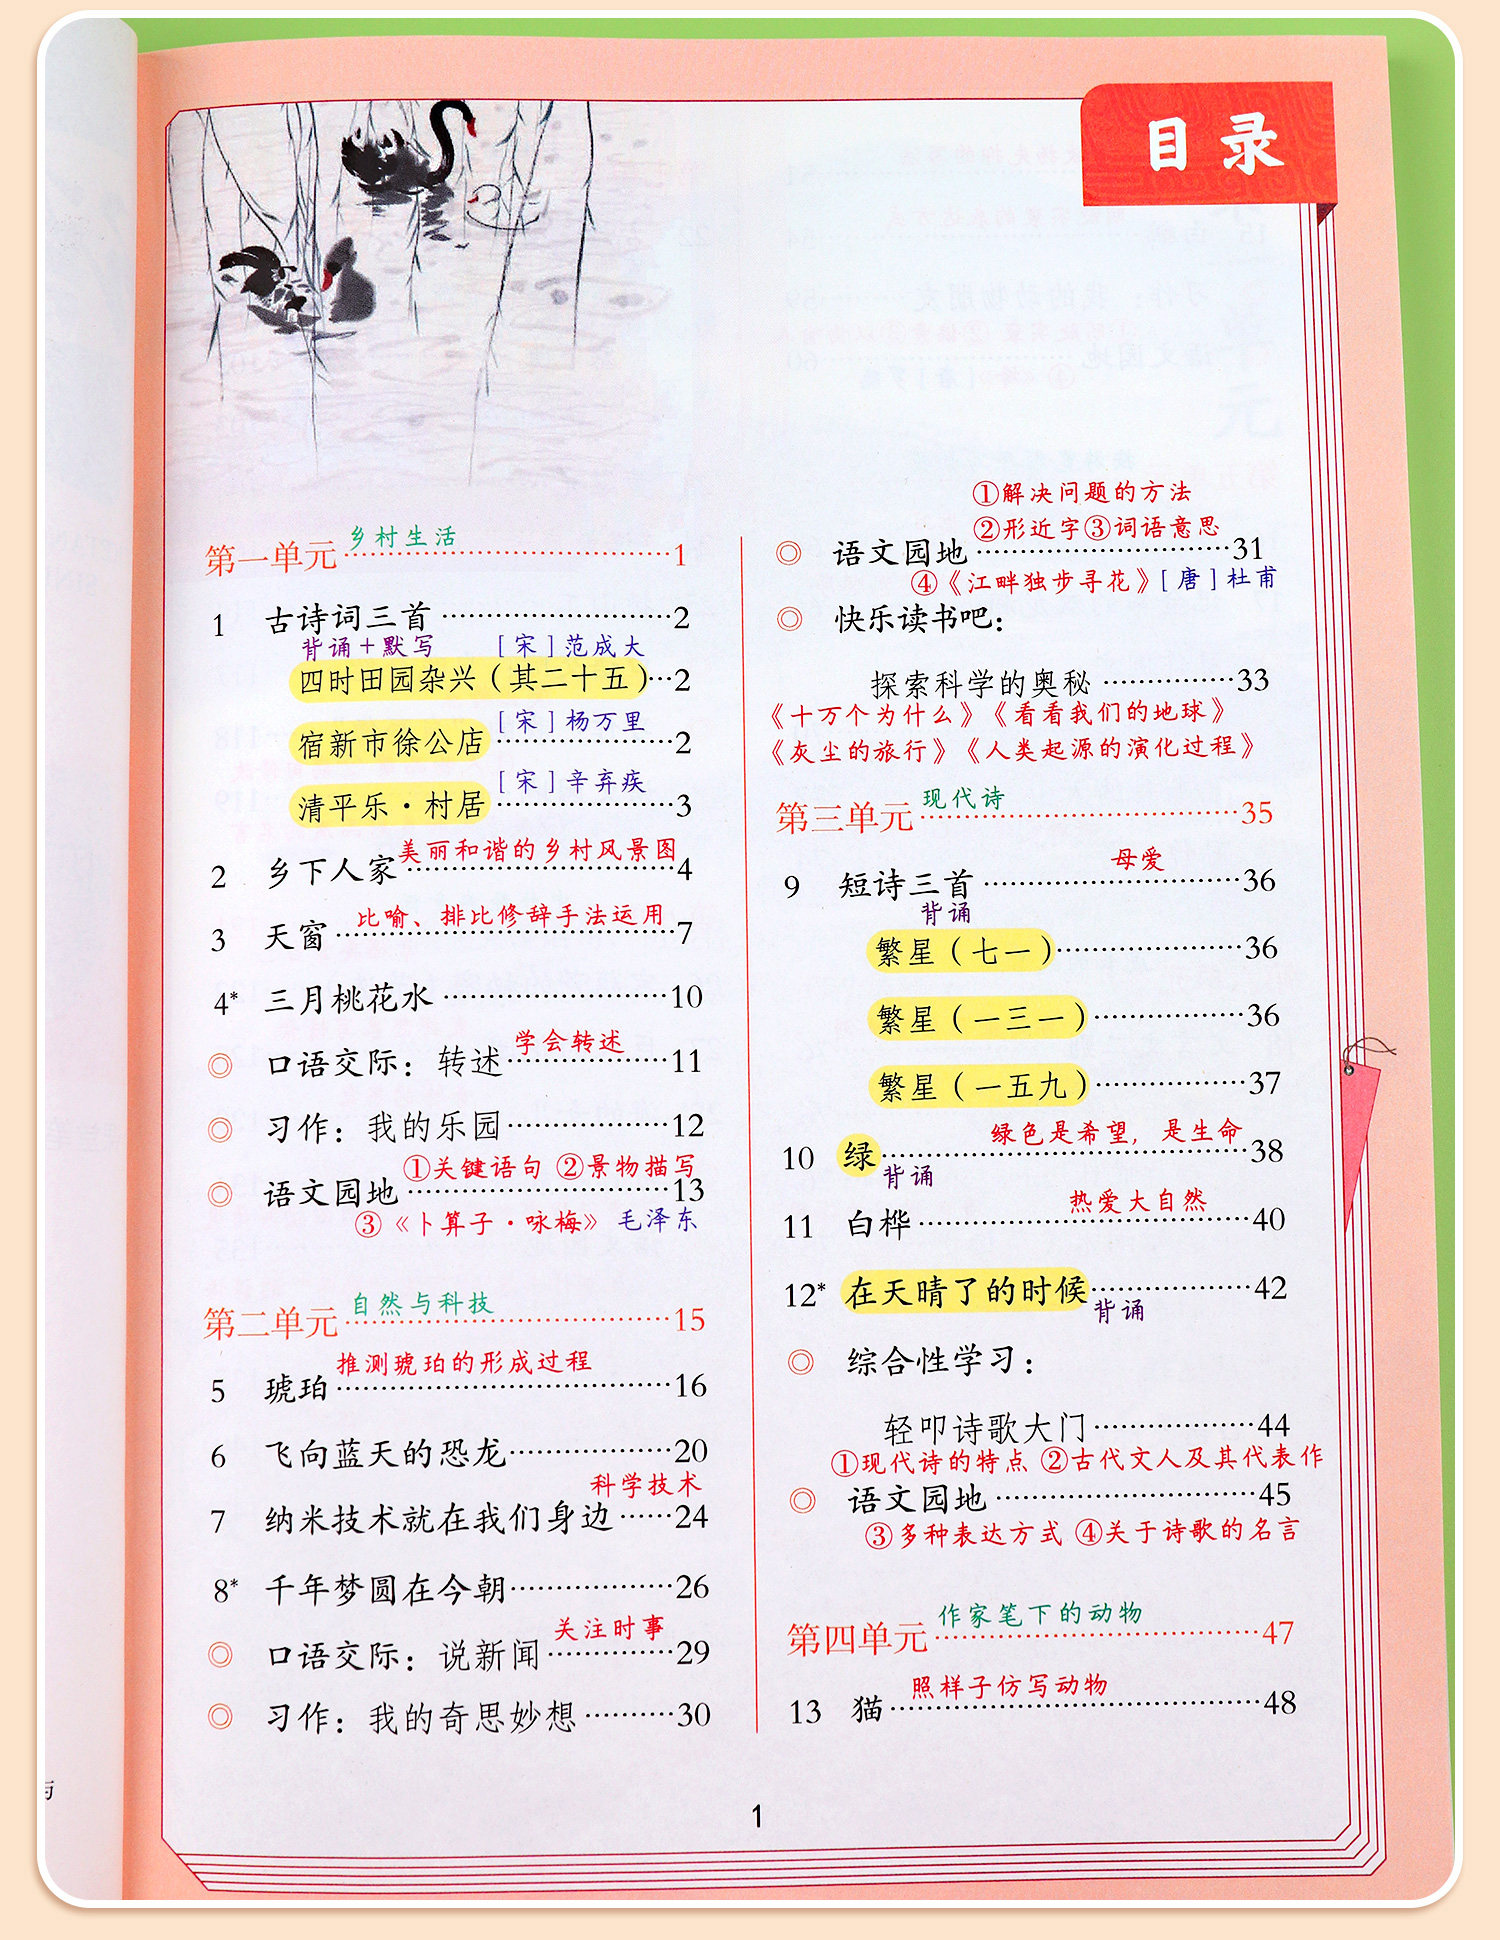 目录
第一单元 乡村生活 1
1 古诗词三首 2
背诵+默写 [宋]范成大
四时田园杂兴(其二十五) 2
[宋]杨万里
宿新市徐公店 2
[宋]辛弃疾
清平乐·村居 3
美丽和谐的乡村风景图
2 乡下人家 4
比喻、排比修辞手法运用
3 天窗 7
4* 三月桃花水 10
学会转述
◎ 口语交际：转述 11
◎ 习作：我的乐园 12
①关键语句 ②景物描写
◎ 语文园地 13
③《卜算子·咏梅》 毛泽东
第二单元 自然与科技 15
推测琥珀的形成过程
5 琥珀 16
6 飞向蓝天的恐龙 20
科学技术
7 纳米技术就在我们身边 24
8* 千年梦圆在今朝 26
关注时事
◎ 口语交际：说新闻 29
◎ 习作：我的奇思妙想 30
①解决问题的方法
②形近字③词语意思
◎ 语文园地 31
④《江畔独步寻花》[唐]杜甫
◎ 快乐读书吧：
探索科学的奥秘 33
《十万个为什么》《看看我们的地球》
《灰尘的旅行》《人类起源的演化过程》
第三单元 现代诗 35
母爱
9 短诗三首 36
背诵
繁星(七一) 36
繁星(一三一) 36
繁星(一五九) 37
绿色是希望，是生命
10 绿 38
背诵
热爱大自然
11 白桦 40
12* 在天晴了的时候 42
背诵
◎ 综合性学习：
轻叩诗歌大门 44
①现代诗的特点 ②古代文人及其代表作
◎ 语文园地 45
③多种表达方式 ④关于诗歌的名言
第四单元 作家笔下的动物 47
照样子仿写动物
13 猫 48
1